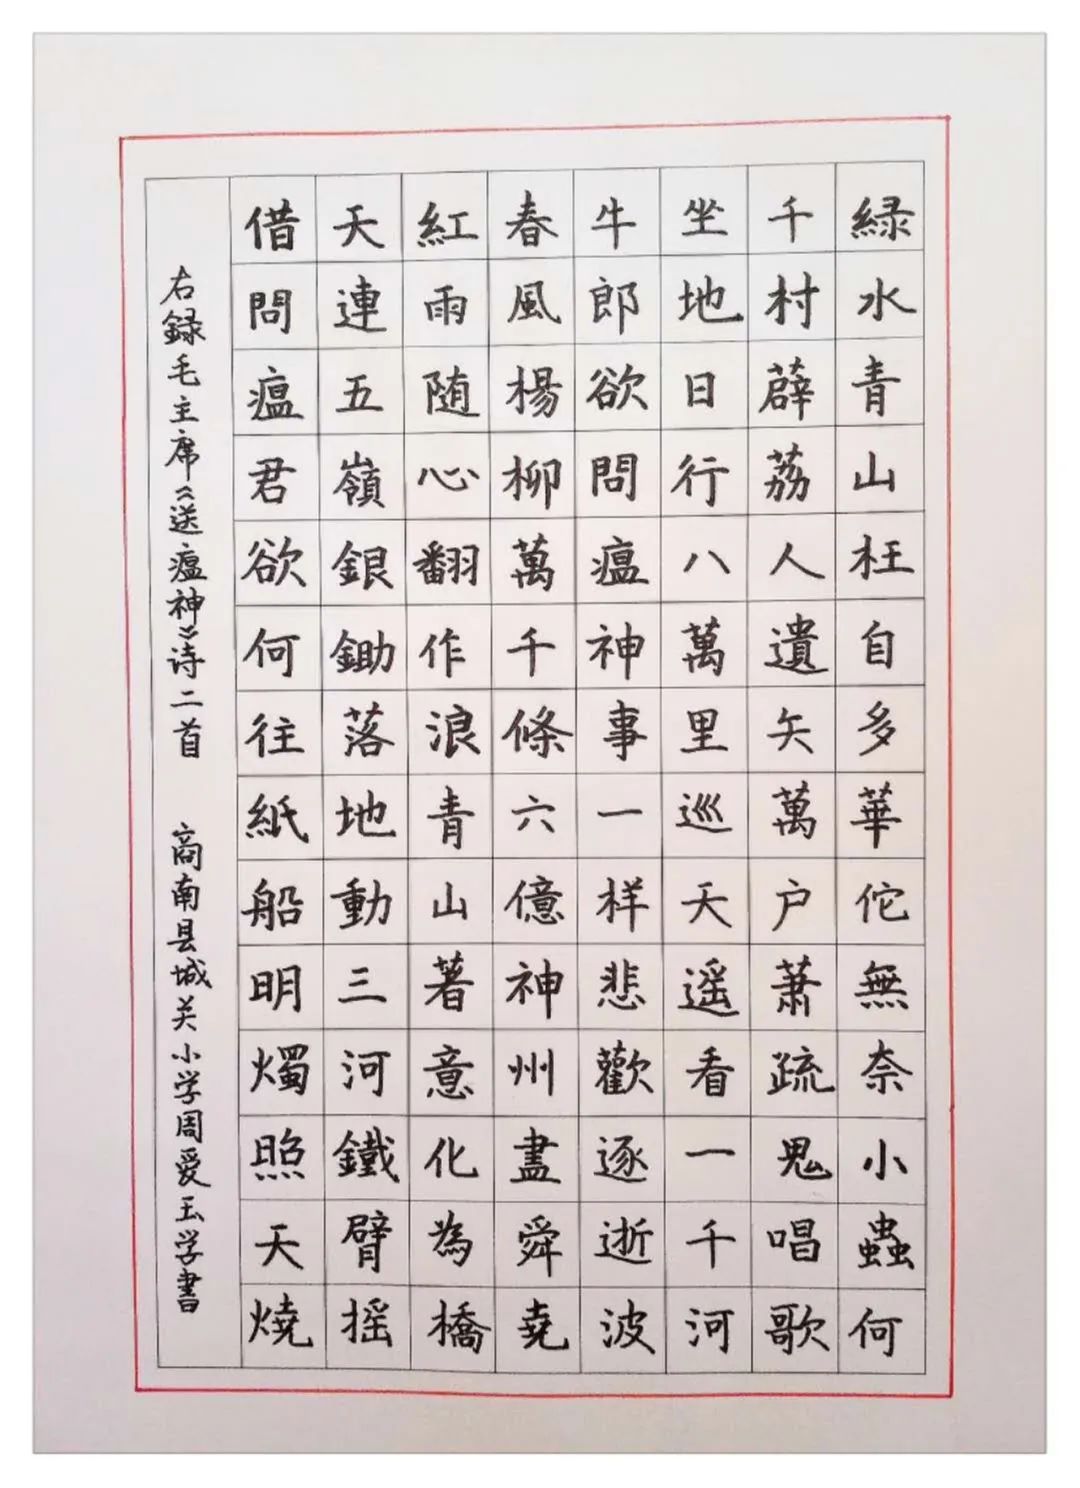 緑水青山枉自多華佗無奈小蟲何
千村薜荔人遺矢萬户萧疏鬼唱歌
坐地日行八萬里巡天遥看一千河
牛郎欲問瘟神事一样悲歡逐逝波
春風楊柳萬千條六億神州盡舜堯
紅雨随心翻作浪青山著意化為橋
天連五嶺銀鋤落地動三河鐵臂摇
借問瘟君欲何往紙船明燭照天燒
右録毛主席《送瘟神》诗二首 商南县城关小学周爱玉学書